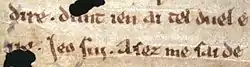 dire. dunt ien ai tel duel e
Jeo sui. Asez me sai de